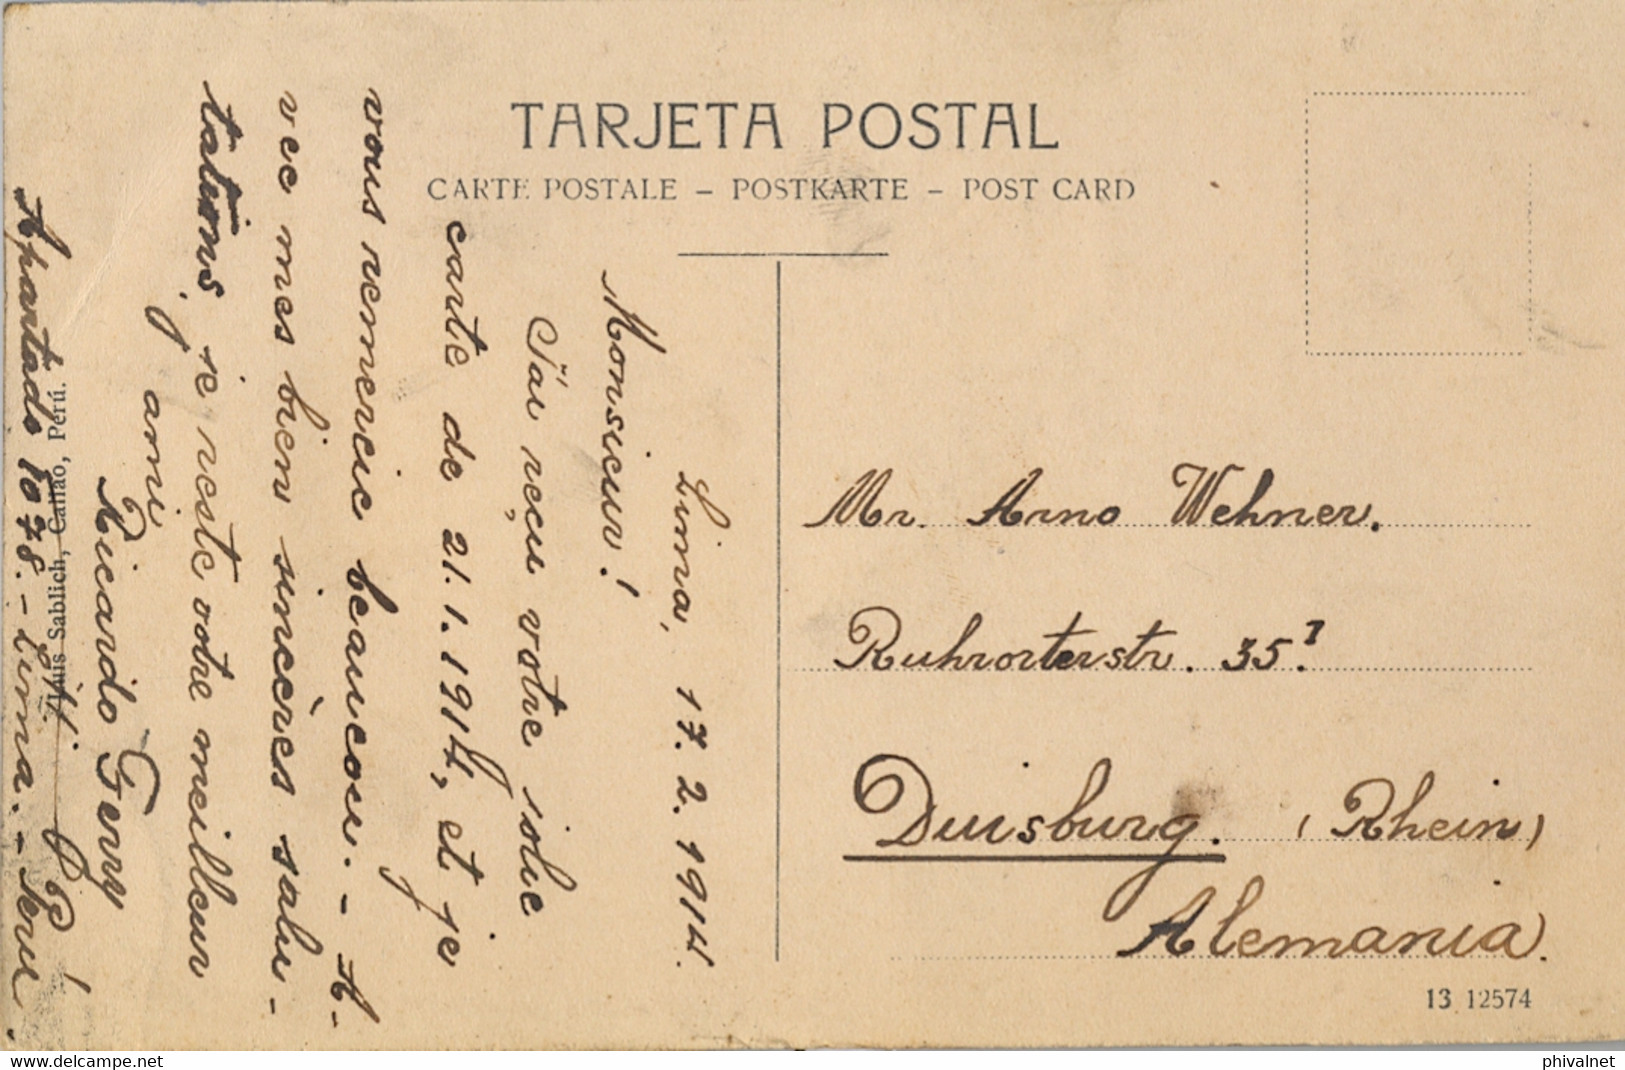 TARJETA POSTAL
CARTE POSTALE – POSTKARTE – POST CARD
Lima, 17. 2. 1914.
Monsieur!
J'ai reçu votre jolie
carte de 21. 1. 1914, et je
vous remercie beaucou. – A-
vec mes bien sincères salu-
tations je reste votre meilleur
ami
Ricardo Ferry
Apartado 1078. – Lima. – Peru.
Luis Sablich, Callao, Perú.
Mr. Arno Wehner.
Ruhrorterstr. 35.I
Duisburg. (Rhein)
Alemania.
13 12574
phivalnet